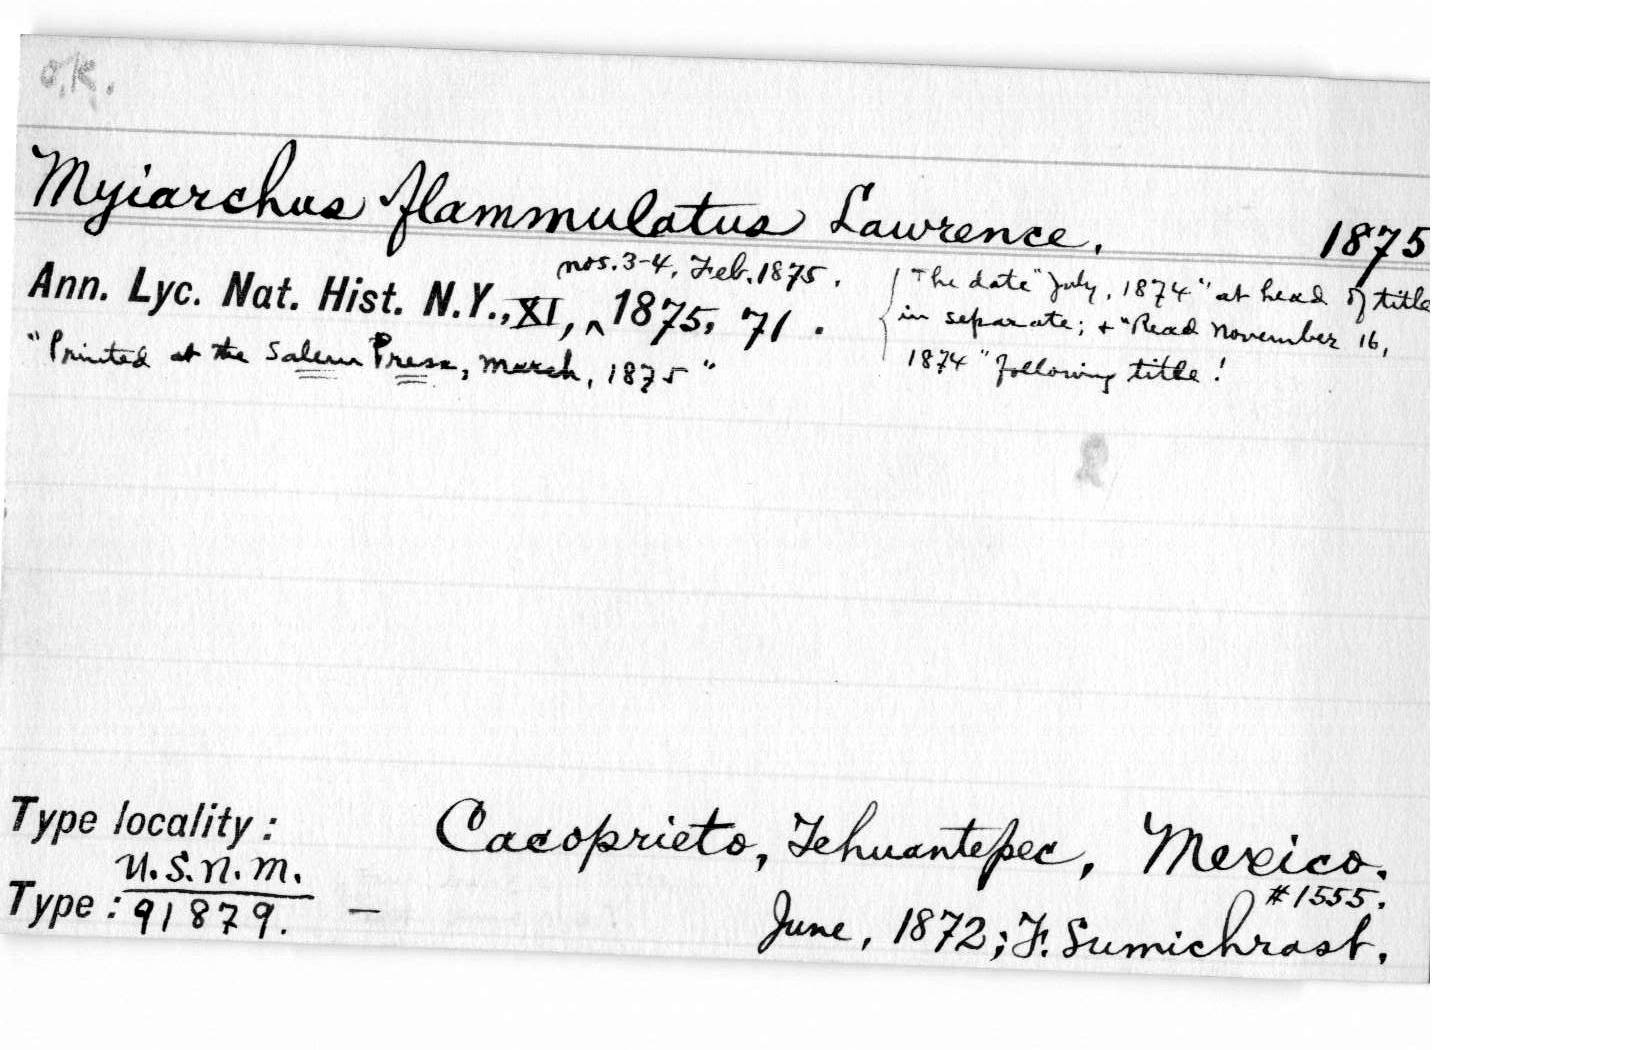 O.K.
Myiarchus flammulatus Lawrence. 1875
nos. 3-4, Feb. 1875.
Ann. Lyc. Nat. Hist. N.Y., XI, ^ 1875, 71.
"Printed at the Salem Press, March, 1875"
{ The date "July, 1874" at head of title
in separate; + "Read November 16,
1874" following title!
Type locality: Cacoprieto, Tehuantepec, Mexico.
U.S.N.M.
#1555.
Type: 91879. — June, 1872; F. Sumichrast.